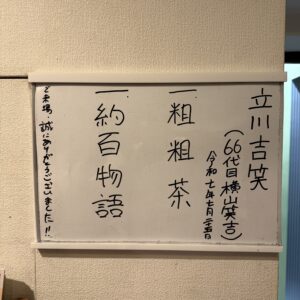 立川吉笑
(66代目横山笑吉)
令和七年七月二十五日
一.粗粗茶
一.約百物語
ご来場、誠にありがとうございました!!